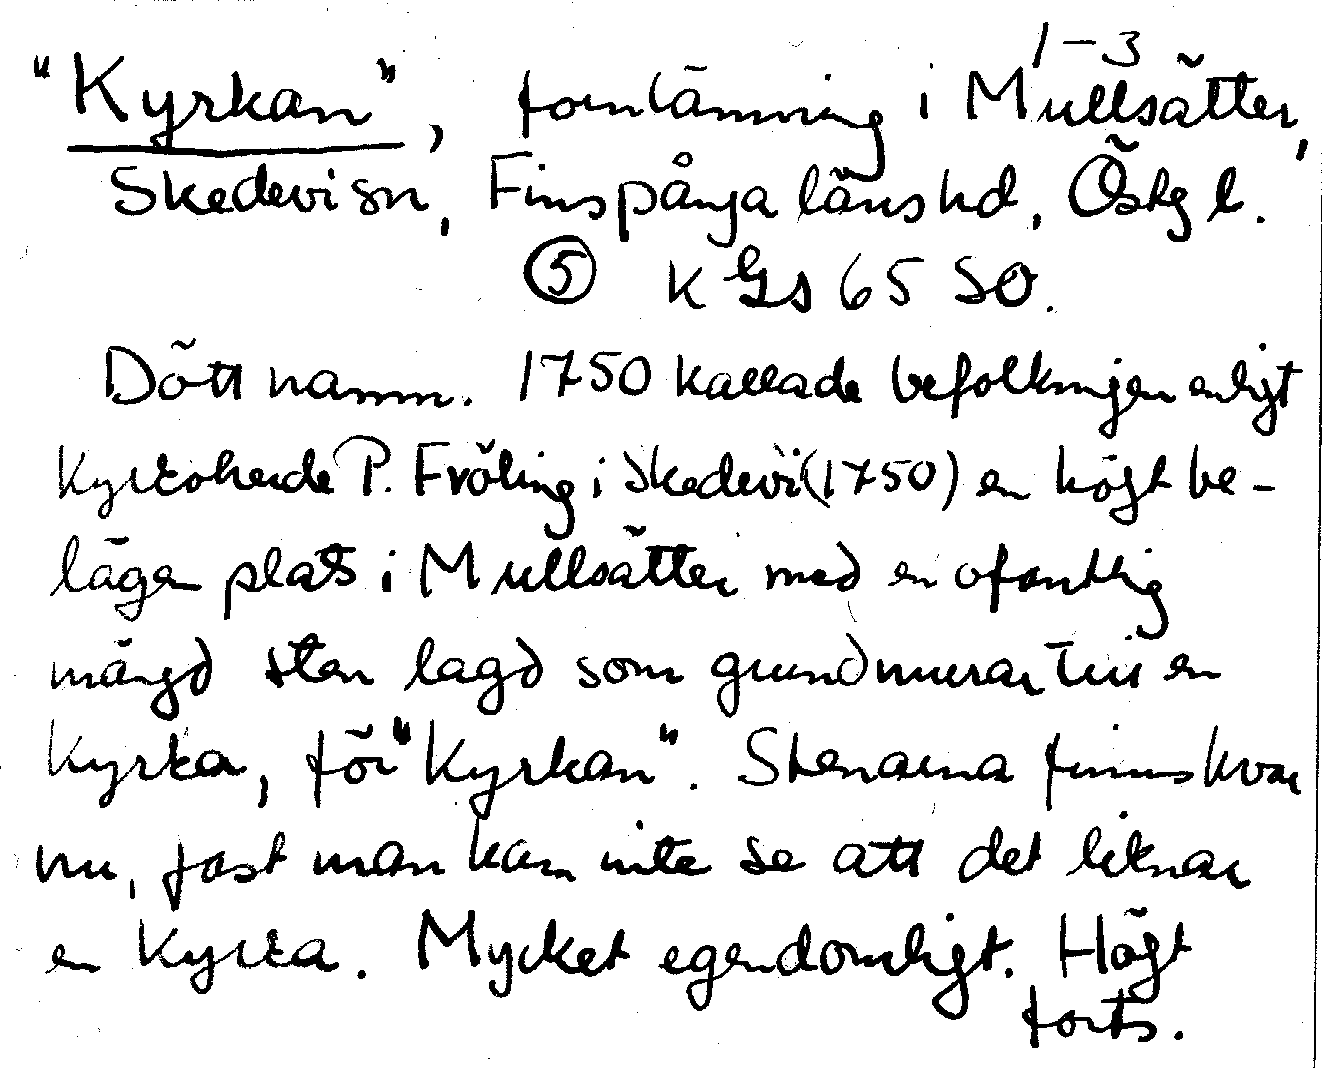 1-3
"Kyrkan", fornlämning i Mullsätter,
Skedevi sn, Finspånga läns hd, Östg l.
⑤ K Gs 65 SO.
Dött namn. 1750 kallade befolkningen enligt
kyrkoherde P. Fröling i Skedevi (1750) en högt be-
lägen plats i Mullsätter med en ofantlig
mängd sten lagd som grundmurar till en
kyrka, för "Kyrkan". Stenarna finns kvar
nu, fast man kan inte se att det liknar
en kyrka. Mycket egendomligt. Högt
forts.